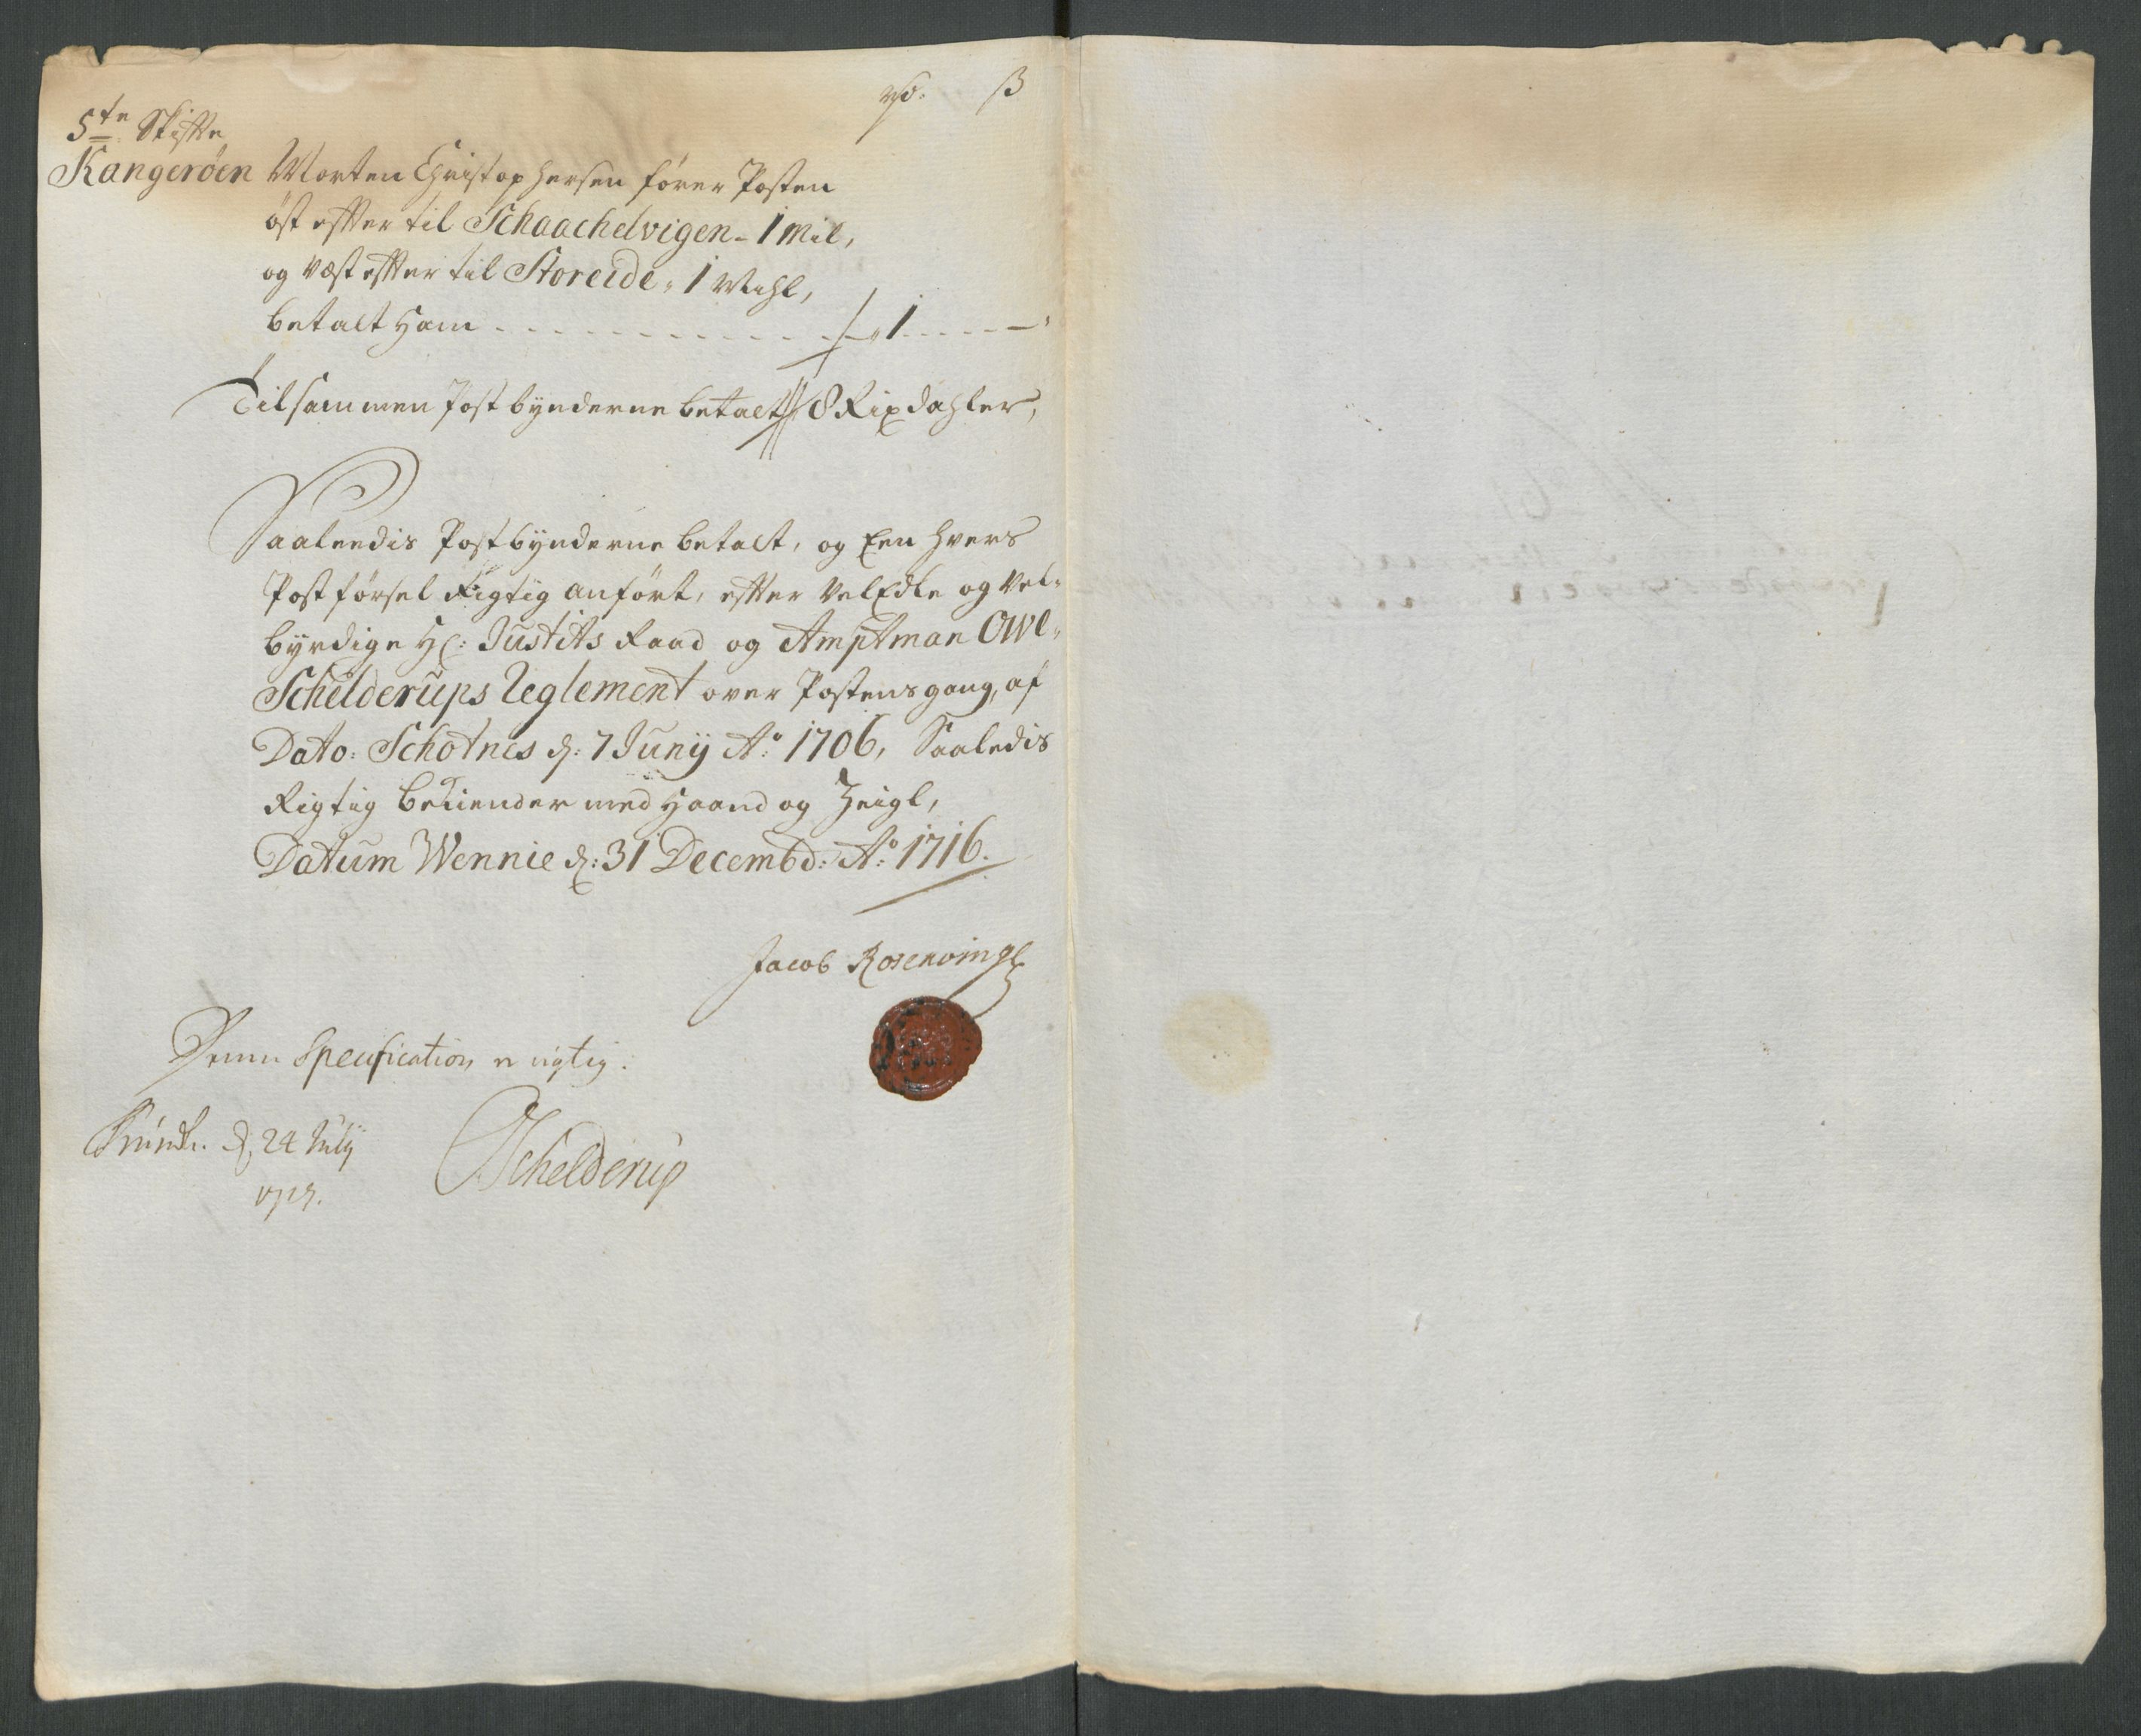 rd. ß
5te Skiffte
Kangerøen Morten Christophersen fører Posten
øst effter til Schaachelvigen - 1 Mil,
og vest effter til Storeide, 1 Mihl,
betalt Ham - - - - 1 - - - -
Tilsammen Postbynderne betalt 8 Rixdahler,
Saaleedis Postbynderne betalt, og Een hvers
Postførsel Rigtig anført, effter VelEdle og Vel-
byrdige Hr: Justits Raad og Amptman Owe
Schelderups Reglement over Postens gang, af
Dato: Schotnes d: 7 Junij Ao: 1706, Saaledis
Rigtig bekiender med Haand og Zeigl,
Datum Wennie d: 31 Decembd: Ao: 1716.
Jacob Rosenvinge
Denne Specification er rigtig.
d. 24 July
1717.
OSchelderup